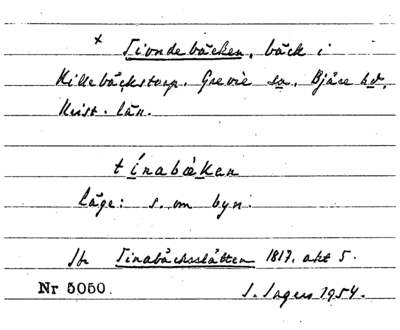 x Tiondebäcken, bäck i
Killebäckstorp. Grevie sn. Bjäre hd,
Krist. län.
tínabäken
Läge: s. om byn.
Jfr Tinabäcksslätten 1817, akt 5.
Nr 5050. I. Ingers 1954.